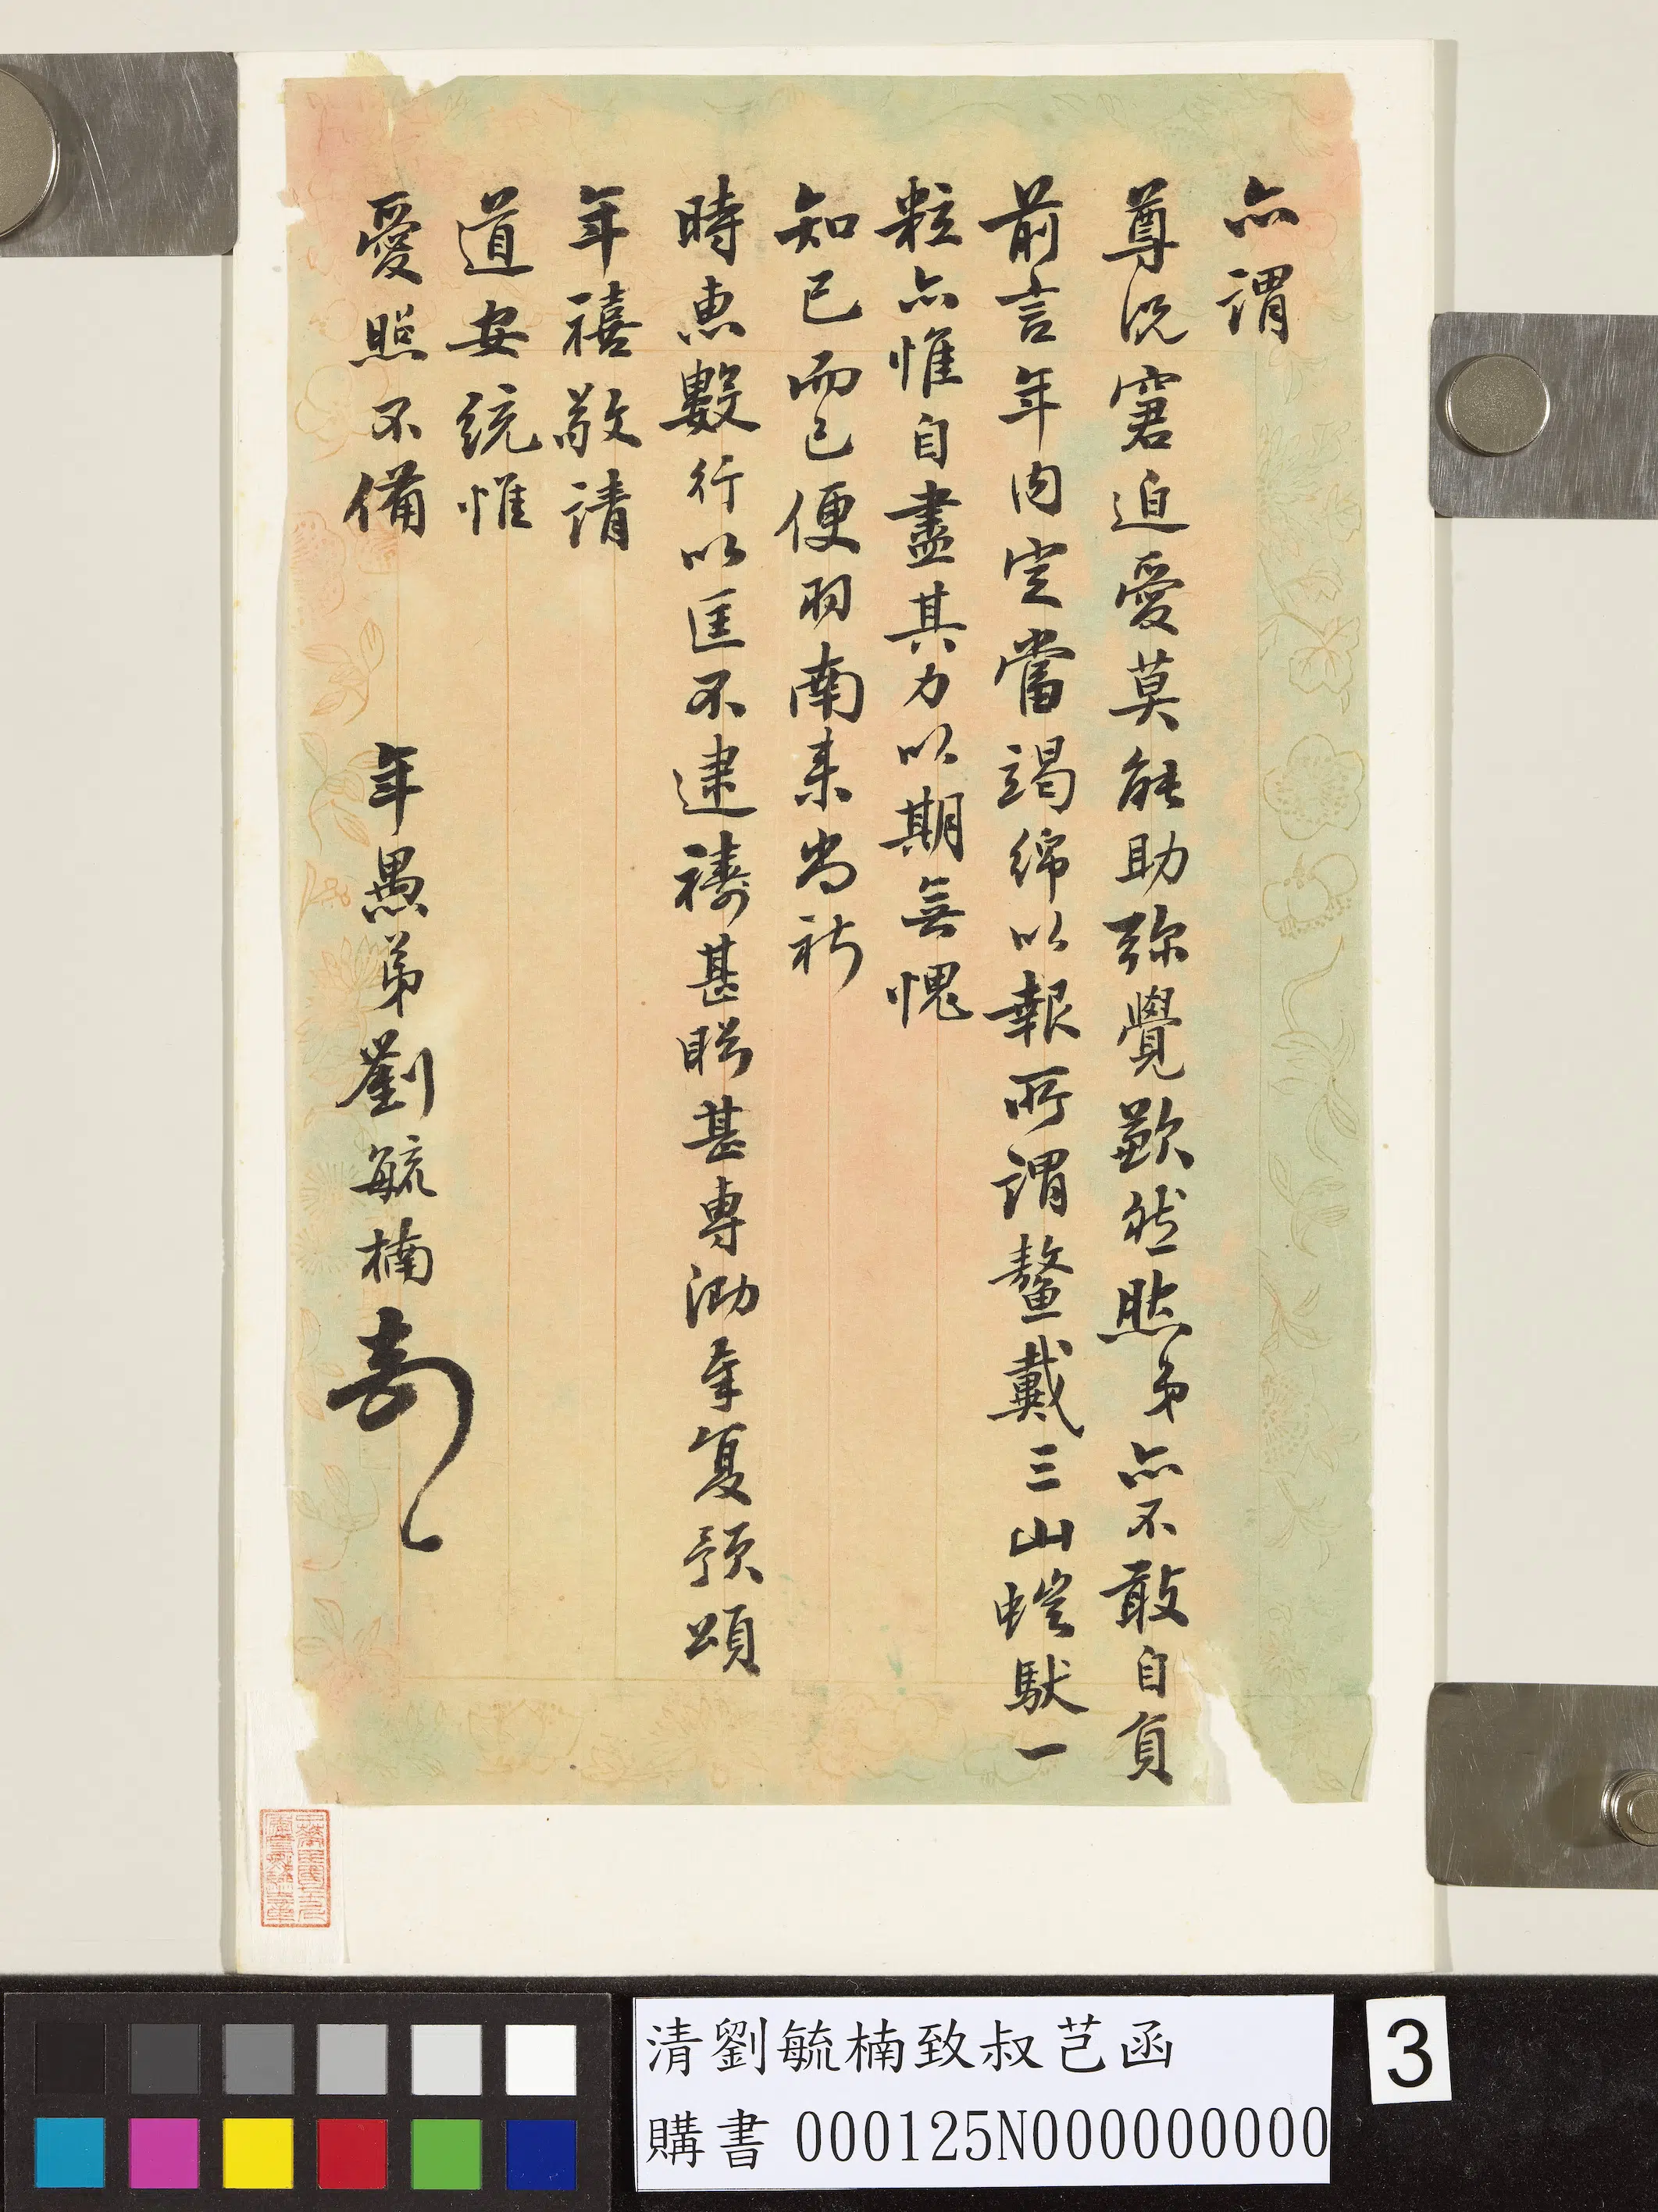 亦謂
尊況窘迫愛莫能助彌覺歉然然弟亦不敢自負
前言年內定當竭綿以報所謂鰲戴三山螘馱一
粒亦惟自盡其力以期無愧
知己而已便羽南來尚祈
時惠數行以匡不逮禱甚盼甚專泐奉复預頌
年禧敬請
道安統惟
愛照不備
年愚弟劉毓楠
清劉毓楠致叔芑函
購書 000125N000000000
3